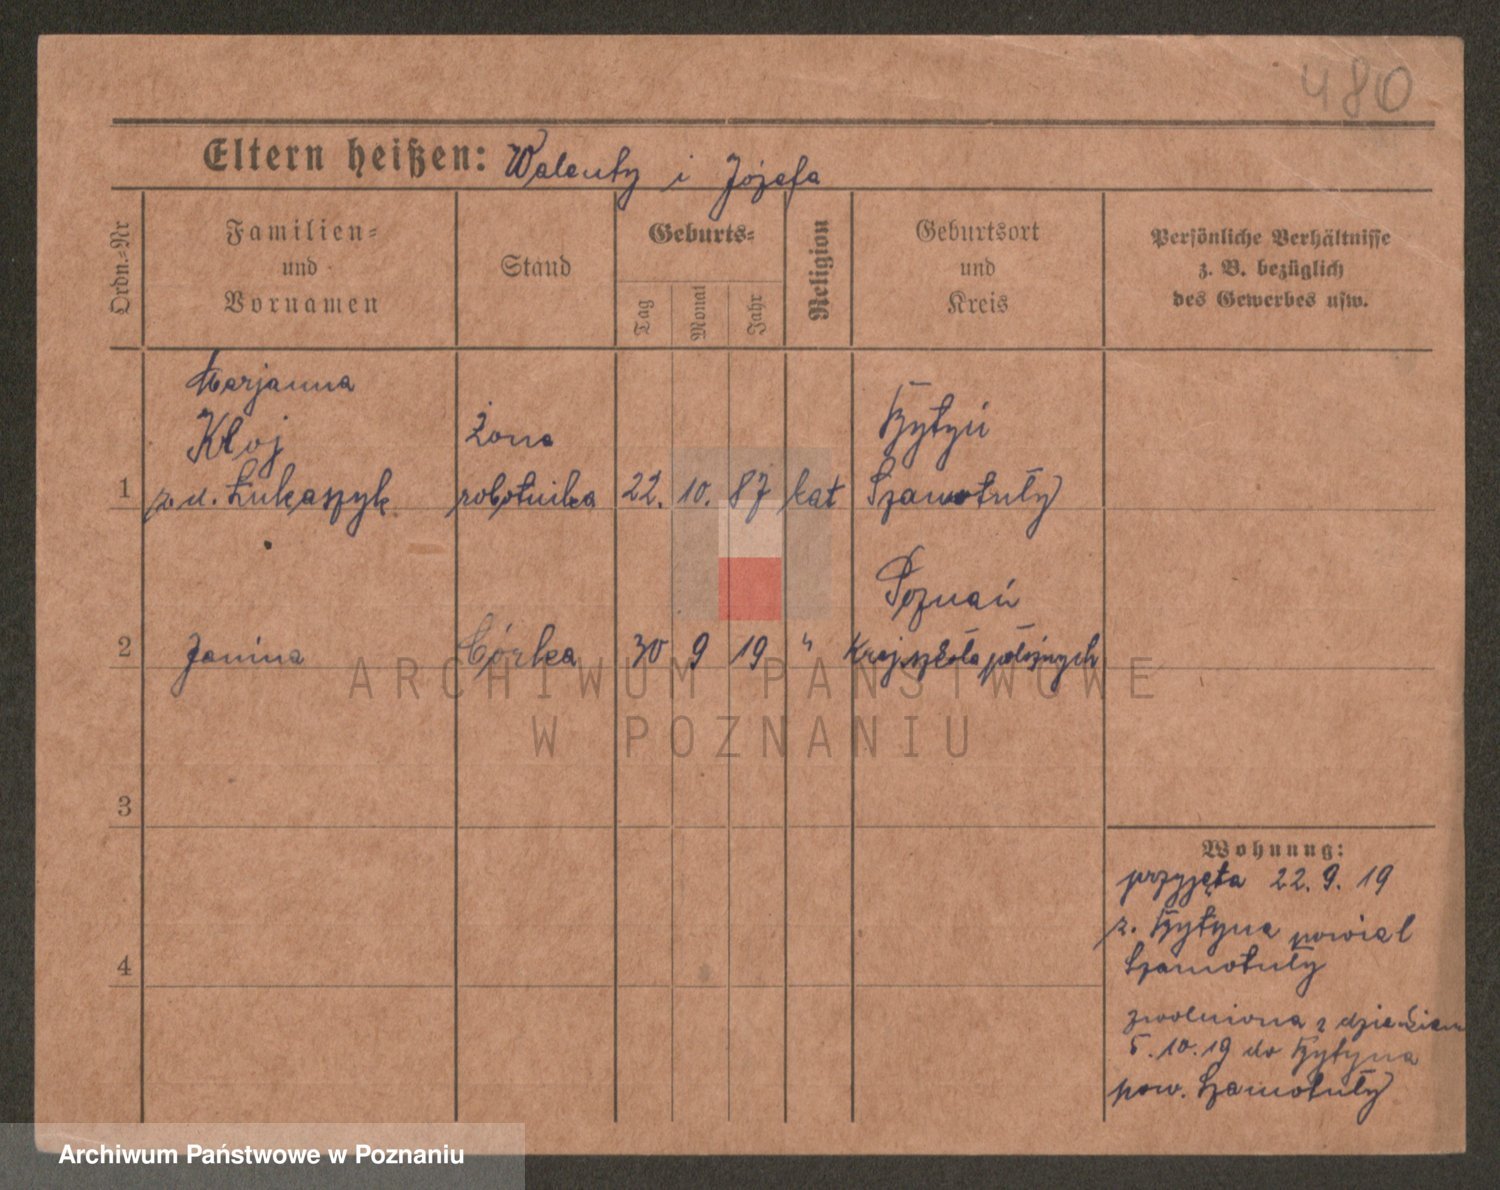 480
Eltern heißen: Walenty i Józefa
Ordn.-Nr
Familien-
und
Vornamen
Stand
Geburts-
Tag
Monat
Jahr
Religion
Geburtsort
und
Kreis
Persönliche Verhältnisse
z. B. bezüglich
des Gewerbes usw.
Marjanna
Kloj
z d. Łukaszyk
Żona
robotnika
22. 10. 87 kat
Bytyń
Szamotuły
1
2
Janina
Córka
30 9 19 "
Poznań
Kraj. szkoła położnych
3
4
Wohnung:
przyjęta 22.9.19
z. Bytyna powiat
Szamotuły
zwolniona z dzieckiem
5.10.19 do Bytyna
pow. Szamotuły
ARCHIWUM PAŃSTWOWE
W POZNANIU
Archiwum Państwowe w Poznaniu